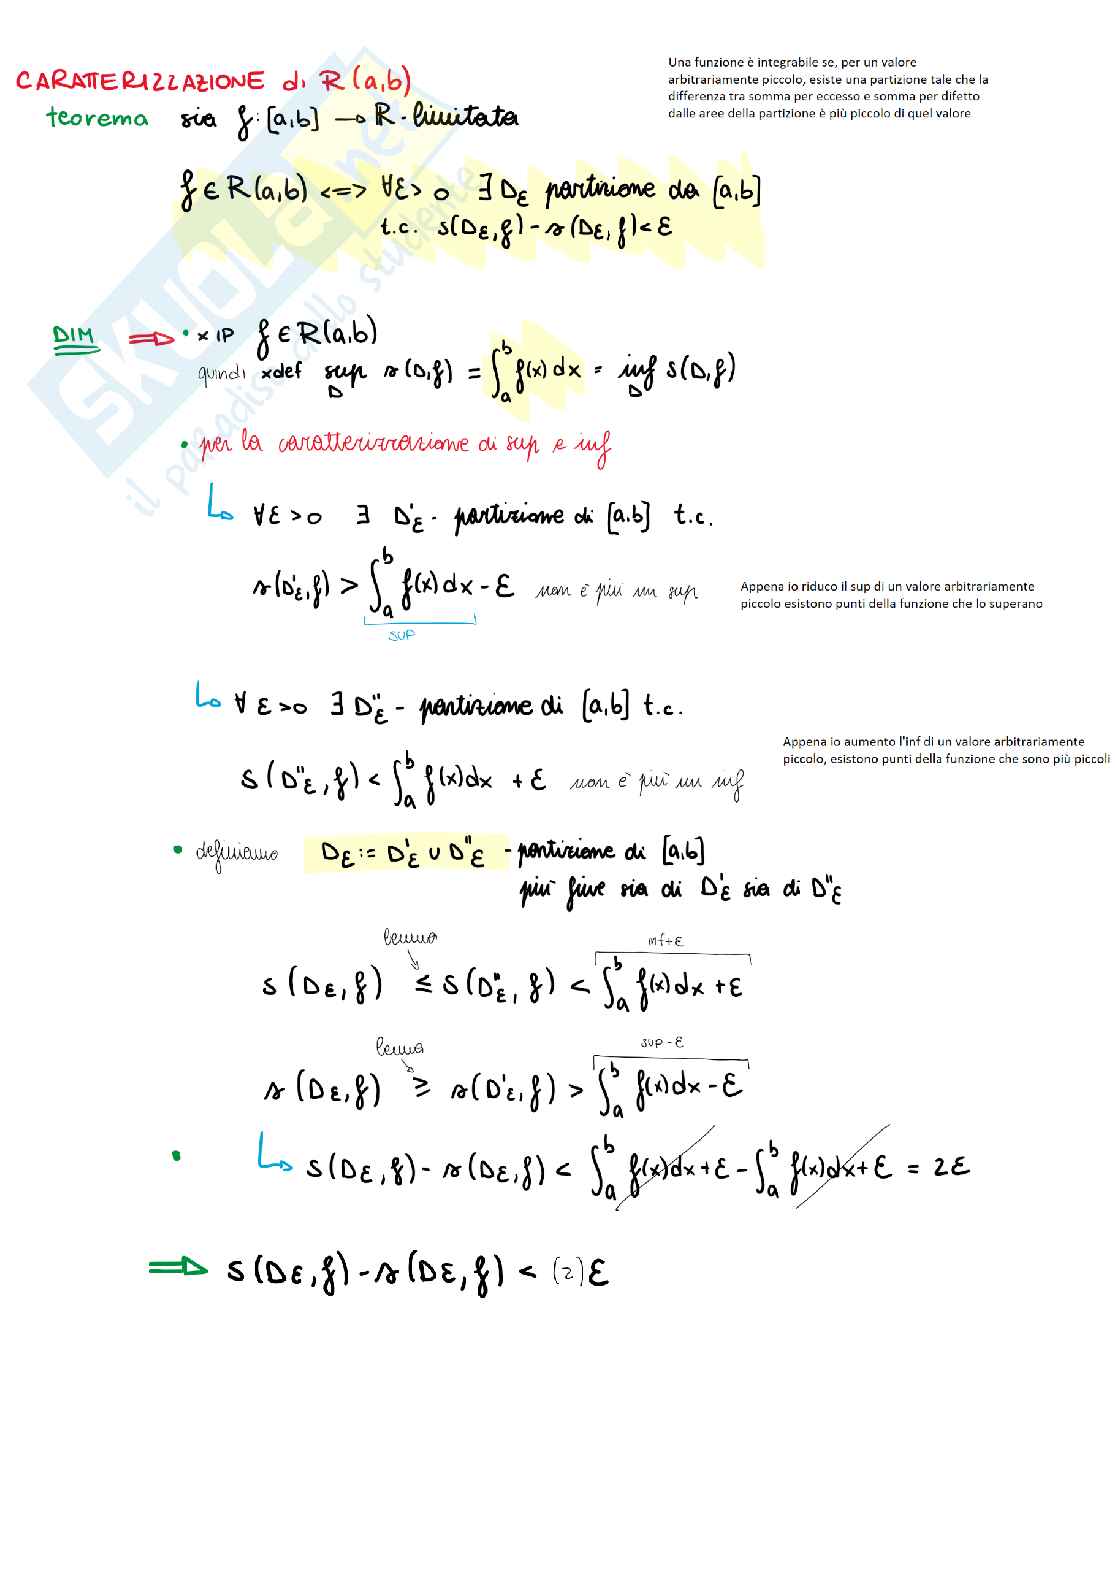 CARATTERIZZAZIONE di R(a,b)
Una funzione è integrabile se, per un valore
arbitrariamente piccolo, esiste una partizione tale che la
differenza tra somma per eccesso e somma per difetto
dalle aree della partizione è più piccolo di quel valore
teorema sia f:[a,b] → R - limitata
f ∈ R(a,b) <=> ∀ε>0 ∃ Dε partizione da [a,b]
t.c. S(Dε,f) - s(Dε,f) < ε
DIM ⇒ • x IP f ∈ R(a,b)
quindi xdef sup_D s(D,f) = ∫_a^b f(x)dx = inf_D S(D,f)
• per la caratterizzazione di sup e inf
↳ ∀ε>0 ∃ D'ε - partizione di [a,b] t.c.
s(D'ε,f) > ∫_a^b f(x)dx - ε non è più un sup
SUP
Appena io riduco il sup di un valore arbitrariamente
piccolo esistono punti della funzione che lo superano
↳ ∀ε>0 ∃ D''ε - partizione di [a,b] t.c.
S(D''ε,f) < ∫_a^b f(x)dx + ε non è più un inf
Appena io aumento l'inf di un valore arbitrariamente
piccolo, esistono punti della funzione che sono più piccoli
• definiamo Dε := D'ε ∪ D''ε - partizione di [a,b]
più fine sia di D'ε sia di D''ε
lemma
inf+ε
S(Dε,f) ≤ S(D''ε,f) < ∫_a^b f(x)dx + ε
lemma
sup-ε
s(Dε,f) ≥ s(D'ε,f) > ∫_a^b f(x)dx - ε
• ↳ S(Dε,f) - s(Dε,f) < ∫_a^b f(x)dx + ε - ∫_a^b f(x)dx + ε = 2ε
⇒ S(Dε,f) - s(Dε,f) < (2)ε
SKUOLA.net
il paradiso dello studente